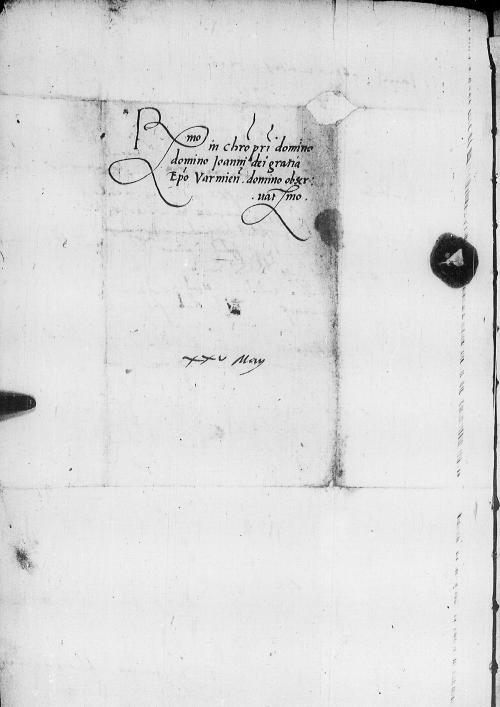 Rmo in chro pri domino
domino Joanni dei gratia
Epo Varmien. domino obser:
uatmo.
xxv May